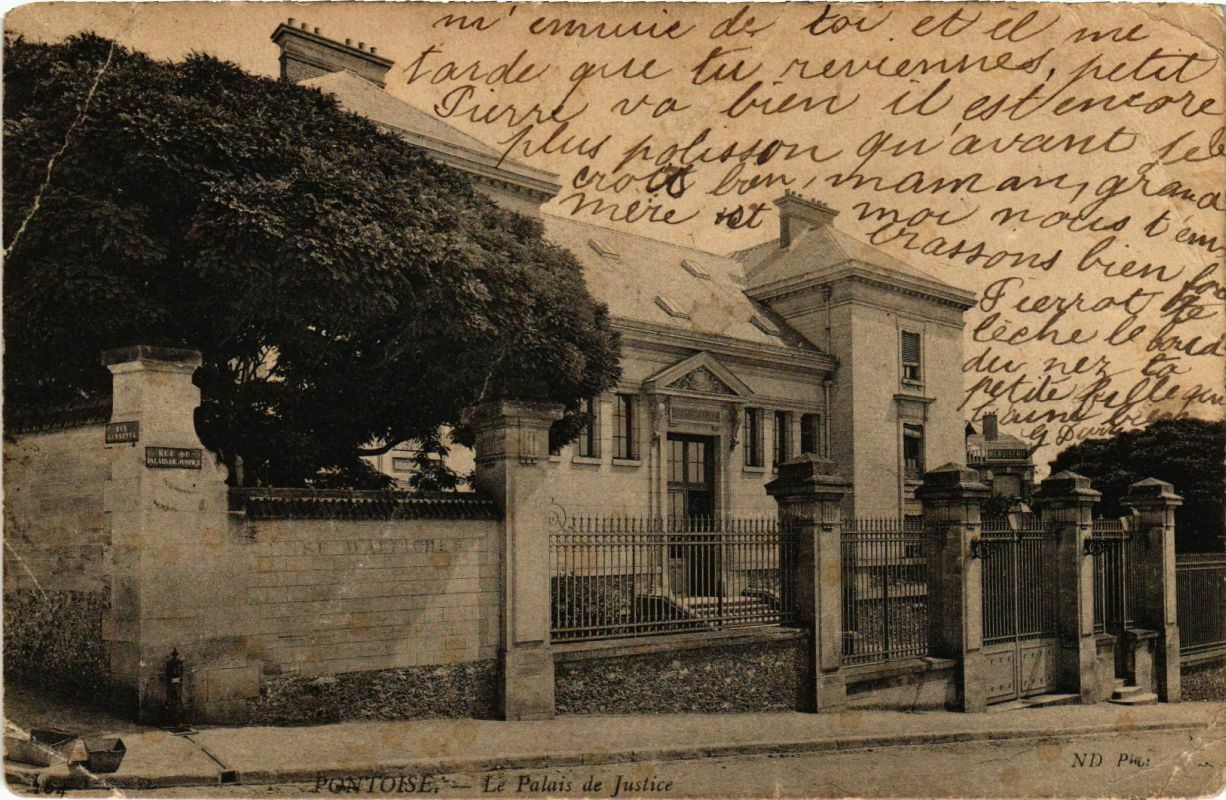 m'ennuie de toi et il me
tarde que tu reviennes, petit
Pierre va bien il est encore
plus polisson qu'avant
croit bon, maman, grand
mère et moi nous t'em
brassons bien
Pierrot te
lèche le bord
du nez ta
petite fille qui
t'aime
RUE
GAMBETTA
RUE DU
PALAIS-DE-JUSTICE
DÉFENSE D'AFFICHER
164
PONTOISE. — Le Palais de Justice
ND Phot